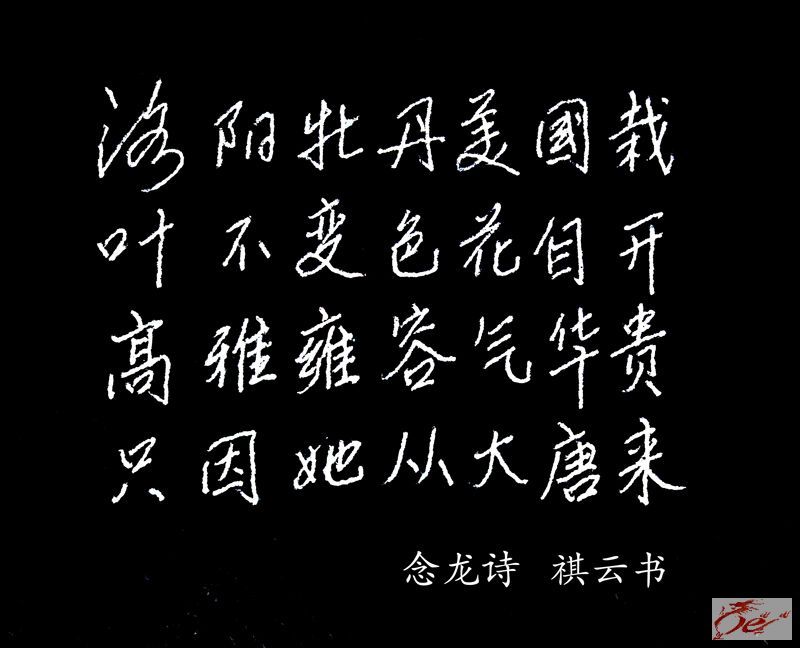 洛阳牡丹美國栽
叶不变色花自开
高雅雍容气华贵
只因她从大唐来
念龙诗 祺云书